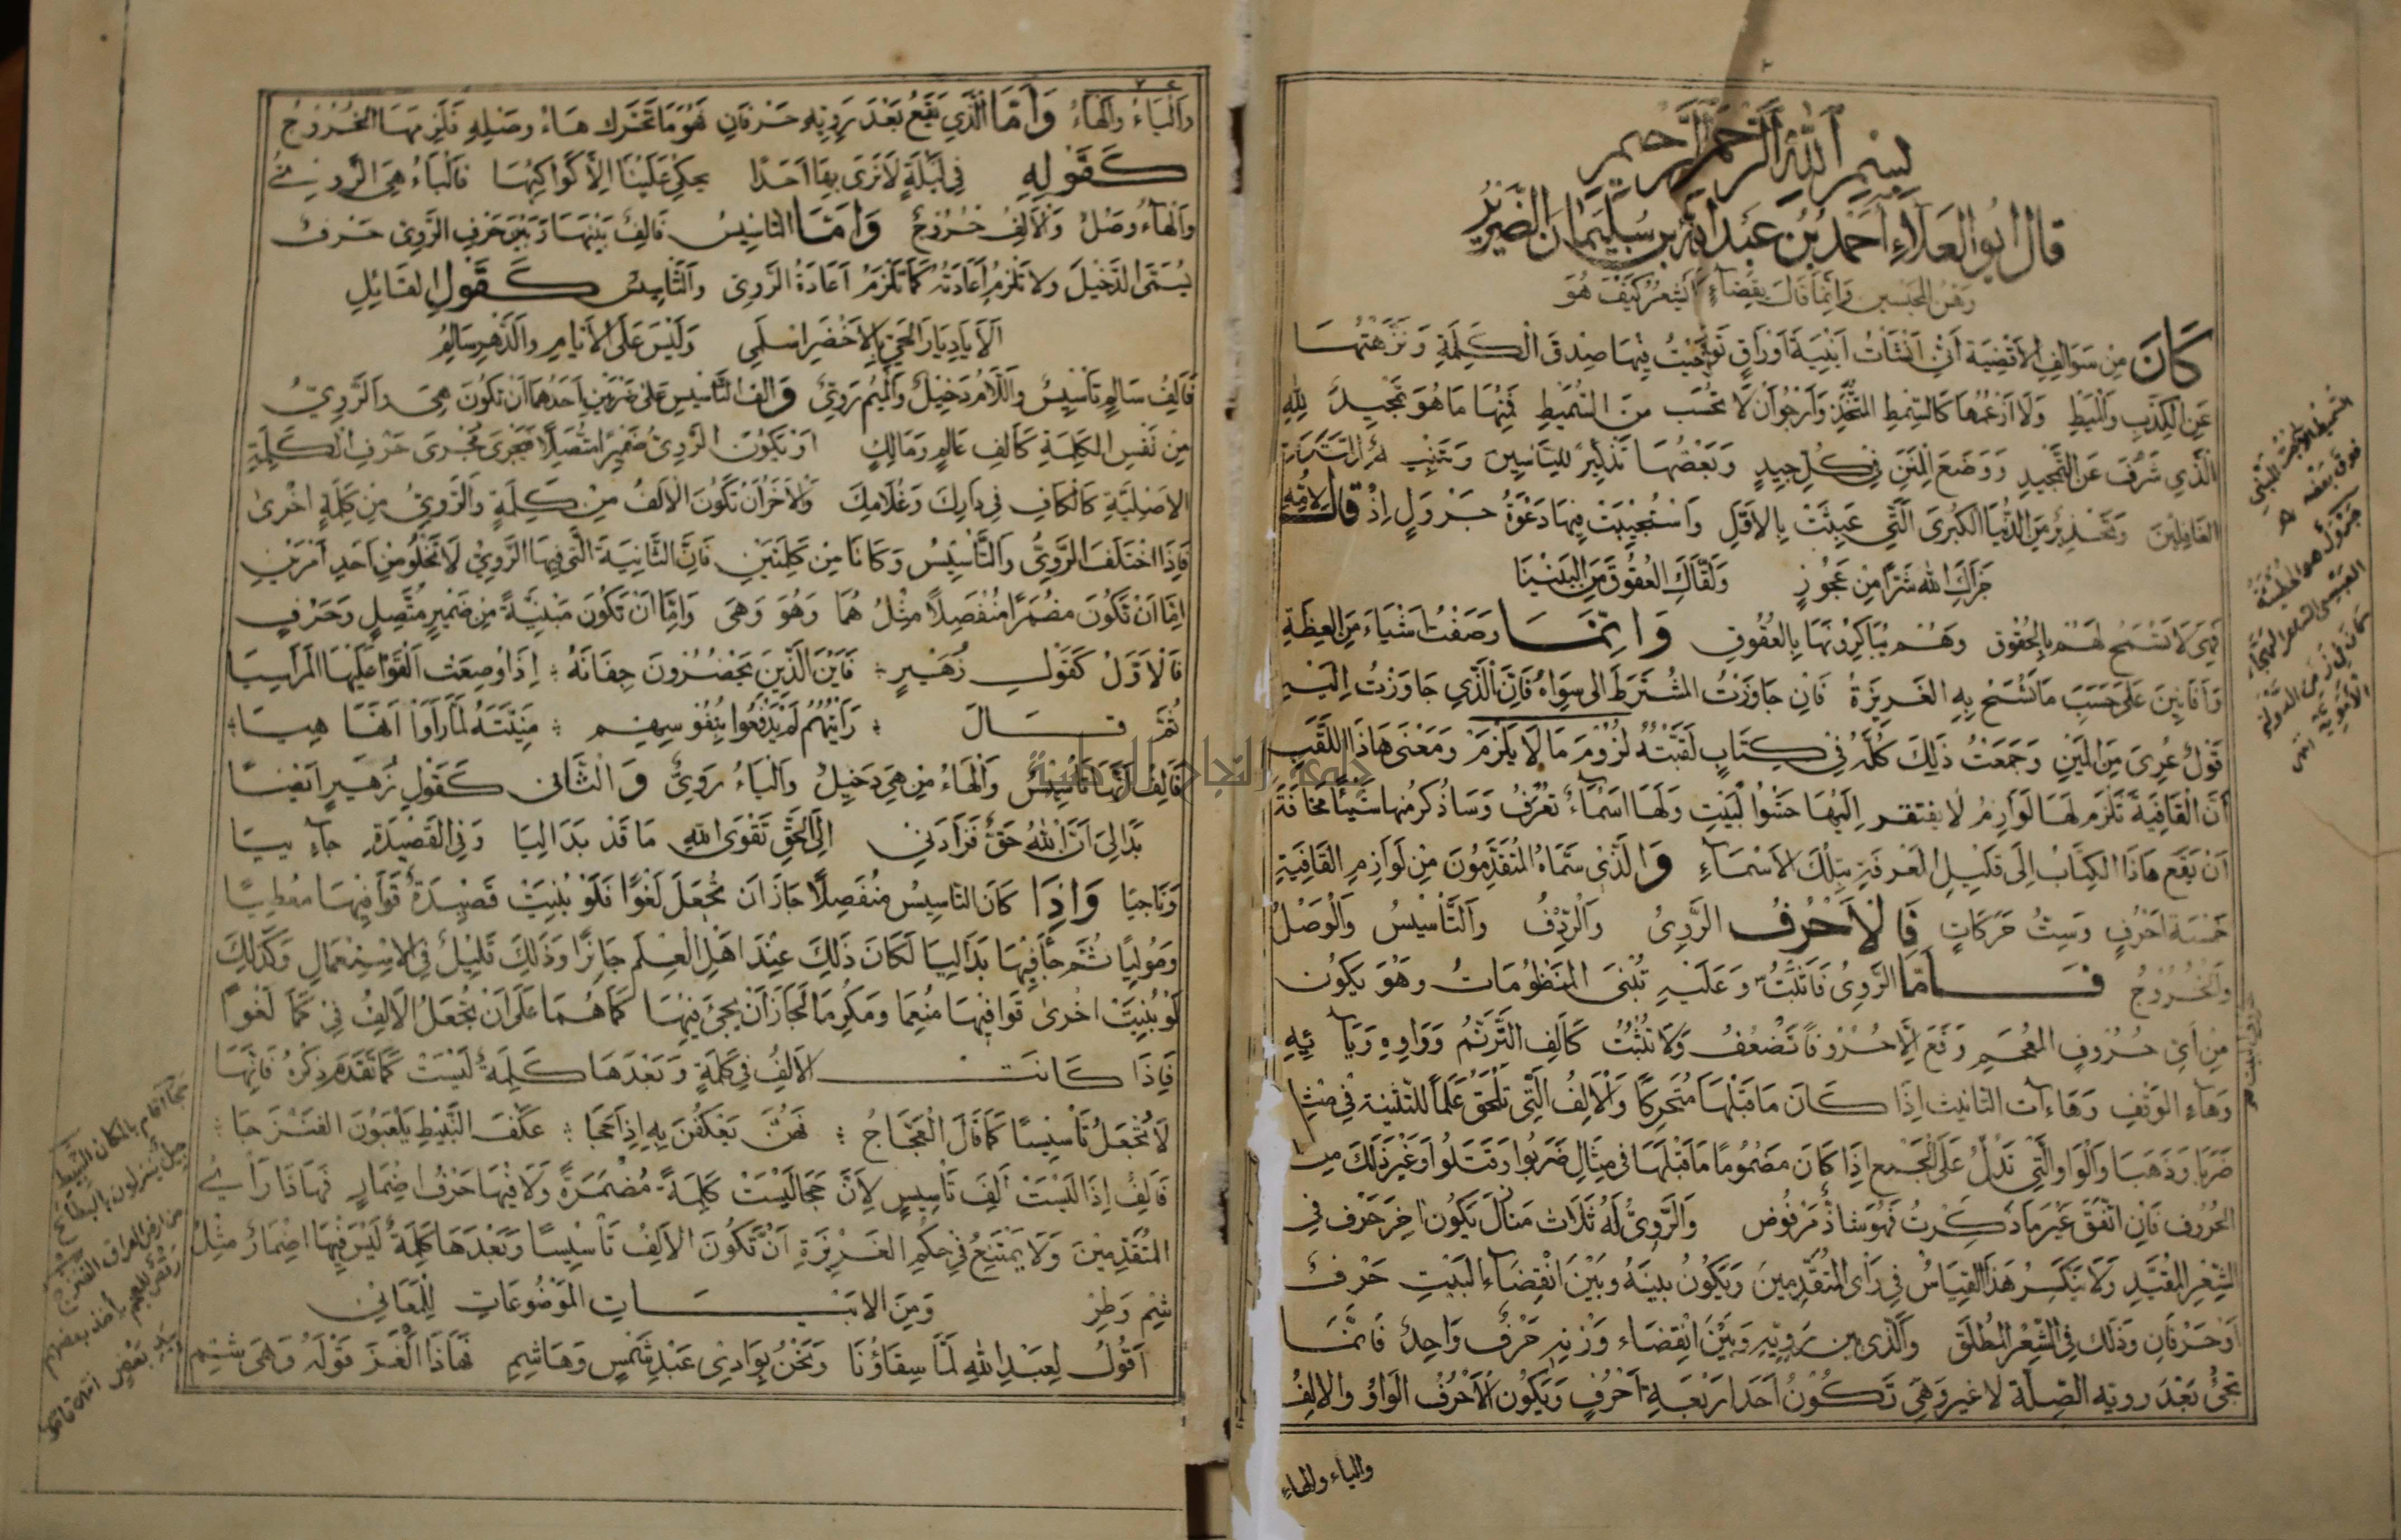 بِسْمِ اللهِ الرَّحْمٰنِ الرَّحِيمِ
قال ابو العلاء احمد بن عبد الله بن سليمان الضرير
رهن المحبسين وانما قال بقضاء الشعر كيف هو
كان من سوالف الاقضية اني انشأت ابنية اوراق توخيت فيها صدق الكلمة ونزهتها
عن الكذب والميط ولا ازعمها كالسمط المتخذ وارجو ان لا تحسب من السميط فمنها ما هو تمجيد لله
الذي شرف عن التمجيد ووضع المنن في كل جيد وبعضها تذكير للناسين وتنبيه
الغافلين وتحذير من الدنيا الكبرى التي عبثت بالاول واستجيبت فيها دعوة جرول اذ قال لامه
جزاك الله شرا من عجوز ولقاك العقوق من البنينا
فهي لا تسمح لهم بالحقوق وهم يباكرونها بالعقوق وانما وصفت اشياء من العظة
وافانين على حسب ما تسمح به الغريزة فان جاوزت المشترط الى سواه فان الذي جاوزت اليه
قول عري من المين وجمعت ذلك كله في كتاب لقبته لزوم ما لا يلزم ومعنى هاذا اللقب
ان القافية تلزم لها لوازم لا يفتقر اليها حشو البيت ولها اسماء تعرف وساذكر منها شيئا مخافة
ان يقع هاذا الكتاب الى قليل المعرفة بتلك الاسماء والذي سماه المتقدمون من لوازم القافية
خمسة احرف وست حركات فالاحرف الروى والردف والتأسيس والوصل
والخروج فاما الروى فاثبت وعليه تبنى المنظومات وهو يكون
من اي حروف المعجم وقع الا حروفا تضعف ولا تثبت كالف الترنم وواوه ويائه
وهاء الوقف وهاءات التانيث اذا كان ما قبلها متحركا والالف التي تلحق علما للتثنية في مثل
ضربا وذهبا والواو التي تدل على الجمع اذا كان مضموما ما قبلها في مثال ضربوا وقتلوا وغير ذلك من
الحروف فان اتفق غير ما ذكرت فهو شاذ مرفوض والروى له ثلاث منازل يكون اخر حرف في
الشعر المقيد ولا ينكسر هذا القياس في رأى المتقدمين ويكون بينه وبين انقضاء البيت حرف
او حرفان وذلك في الشعر المطلق والذي بين رويه وبين انقضاء وزنه حرف واحد فانما
تجئ بعد رويه الصلة لا غير وهي تكون احد اربعة احرف ويكون الاحرف الواو والالف
والياء والهاء
السميط الآجر المبنى
فوق بعضه
جرول هو الحطيئة
العبسى الشاعر
والياء والهاء واما الذي يقع بعد رويه حرفان فهو ما تحرك هاء وصله فلزمها الخروج
كقوله في ليلة لا نرى بها احدا يحكي علينا الا كواكبها فالباء هي الروى
والهاء وصل والالف خروج واما التاسيس فالف بينها وبين حرف الروى حرف
يسمى الدخيل ولا تلزم اعادته كما تلزم اعادة الروى والتأسيس كقول القائل
الا يا ديار الحي بالاخضر اسلمي وليس على الايام والدهر سالم
فالف سالم تأسيس واللام دخيل والميم روي والف التأسيس على ضربين احدهما ان تكون هي والروي
من نفس الكلمة كالف عالم ومالك او يكون الروى ضميرا متصلا فجرى مجرى حرف الكلمة
الاصلية كالكاف في دارك وغلامك والاخر ان تكون الالف من كلمة والروي من كلمة اخرى
فاذا اختلف الروى والتأسيس وكانا من كلمتين فان الثانية التي فيها الروى لا تخلو من احد امرين
اما ان تكون مضمرا منفصلا مثل هما وهو وهي واما ان تكون مبنية من ضمير متصل وحرف
فالاول كقول زهير فاين الذين يحضرون جفانه اذا وضعت القوا عليها المراسيا
ثم قال رايتهم لم يدفعوا بنفوسهم منيته لما راوا انها هيا
فالف انها تأسيس والهاء من هي دخيل والياء روي والثانى كقول زهير ايضا
بدا لي ان الله حق فزادني الى الحق تقوى الله ما قد بدا ليا وفي القصيدة جاءيا
وناجيا واذا كان التاسيس منفصلا جاز ان تجعل لغوا فلو بنيت قصيدة قوافيها معطيا
وموليا ثم جاء فيها بدا ليا لكان ذلك عند اهل العلم جائزا وذلك قليل في الاستعمال وكذلك
لو بنيت اخرى قوافيها منعما ومكرما لجاز ان يجئ فيها كما هما على ان تجعل الالف في كما لغوا
فاذا كانت الالف في كلمة وبعدها كلمة ليست كما تقدم ذكره فانها
لا تجعل تأسيسا كما قال العجاج فهن يعكفن به اذا حجا عكف النبيط يلعبون الفنزجا
فالف اذا ليست الف تأسيس لان حجا ليست كلمة مضمرة ولا فيها حرف اضمار فهاذا رأي
المتقدمين ولا يمتنع في حكم الغريزة ان تكون الالف تأسيسا وبعدها كلمة ليس فيها اضمار مثل
شم وطر ومن الابيات الموضوعات للمعاني
اقول لعبد الله لما سقاؤنا ونحن بوادي عبد شمس وهاشم فهاذا الغز قوله وهى شيم
حجا اقام بالمكان النبيط
جيل ينزلون بالبطائح
من ارض العراق الفنزج
رقص للعجم يأخذ بعضهم
بيد بعض